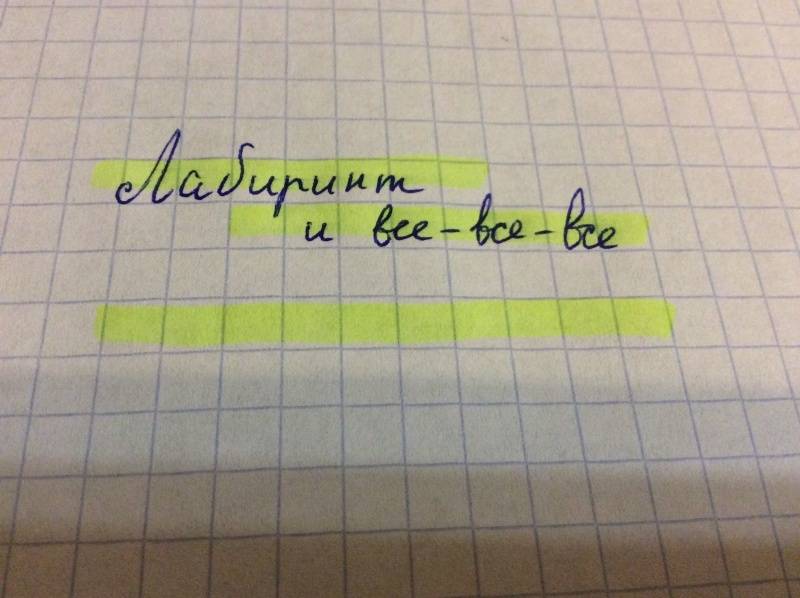 Лабиринт
и все-все-все